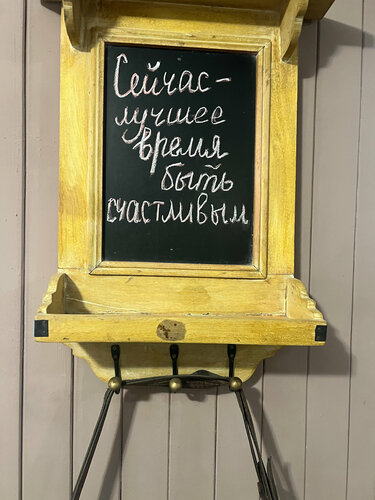 Сейчас -
лучшее
время
быть
счастливым